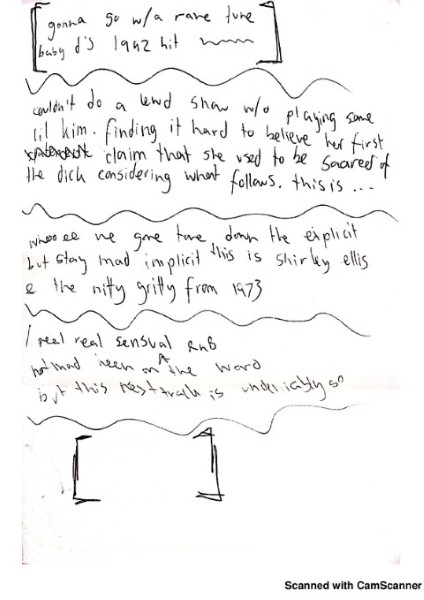 gonna go w/a rare tune
baby d's 1992 hit
couldn't do a lewd show w/o playing some
lil kim. finding it hard to believe her first
claim that she used to be scared of
the dick considering what follows. this is ...
we gone tone down the explicit
but stay mad implicit this is shirley ellis
& the nitty gritty from 1973
real real sensual RnB
not mad keen on the word
but this next track is undeniably so
Scanned with CamScanner